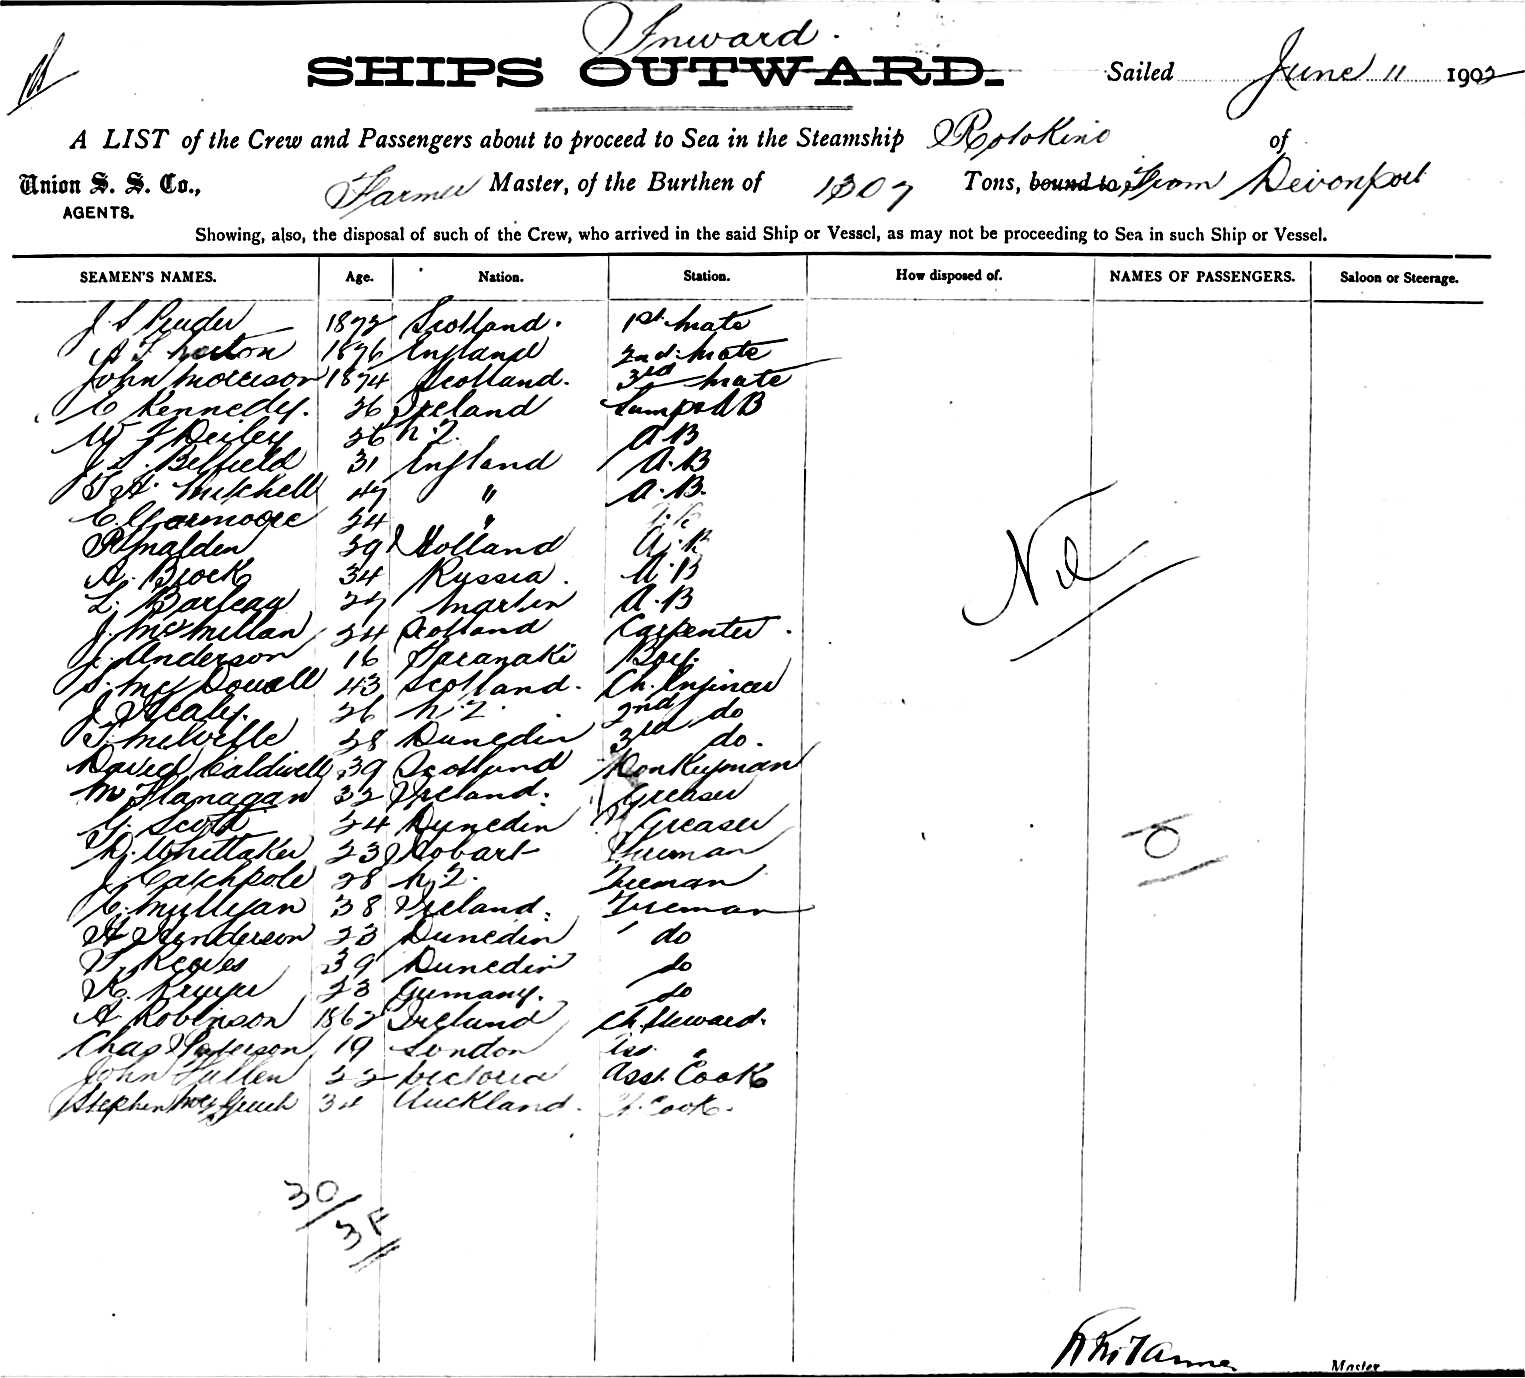 Inward.
SHIPS OUTWARD.
Sailed June 11 1902
A LIST of the Crew and Passengers about to proceed to Sea in the Steamship Rotokino of
Union S. S. Co., Farmer Master, of the Burthen of 1307 Tons, bound to From Devonport
AGENTS.
Showing, also, the disposal of such of the Crew, who arrived in the said Ship or Vessel, as may not be proceeding to Sea in such Ship or Vessel.
SEAMEN'S NAMES. Age. Nation. Station. How disposed of. NAMES OF PASSENGERS. Saloon or Steerage.
J. S 1872 Scotland. 1st Mate
A 1876 England 2nd Mate
John Morrison 1874 Scotland. 3rd Mate
C Kennedy. 36 Ireland Lamps AB
W F Deiley 36 N.Z. AB
J. S. Belfield 31 England A.B
T. H. Mitchell 47 " A.B.
E. 24 "
P. Malden 39 Holland A.B
A. Brock 34 Russia. A.B
L. 27 A.B
J. McMillan 24 Scotland Carpenter.
J. Anderson 16 Taranaki Boy.
S. McDowall 43 Scotland. Ch. Engineer
J Healy. 26 N.Z. 2nd do
T. Melville 28 Dunedin 3rd do.
David Caldwell 39 Scotland Donkeyman
M Flanagan 32 Ireland. Greaser
G. Scott 24 Dunedin Greaser
D. Whittaker 23 Hobart Fireman
J. Catchpole 28 N.Z. Fireman
C. Mulligan 38 Ireland. Fireman
H Henderson 23 Dunedin do
T. Reeves 39 Dunedin do
K. 23 Germany. do
A. Robinson 1862 Ireland Ch. Steward.
Chas Paterson 19 London Ass. "
John Fullen 22 Victoria Asst. Cook
Stephen 34 Auckland. Ch. Cook.
Nil
30
Master